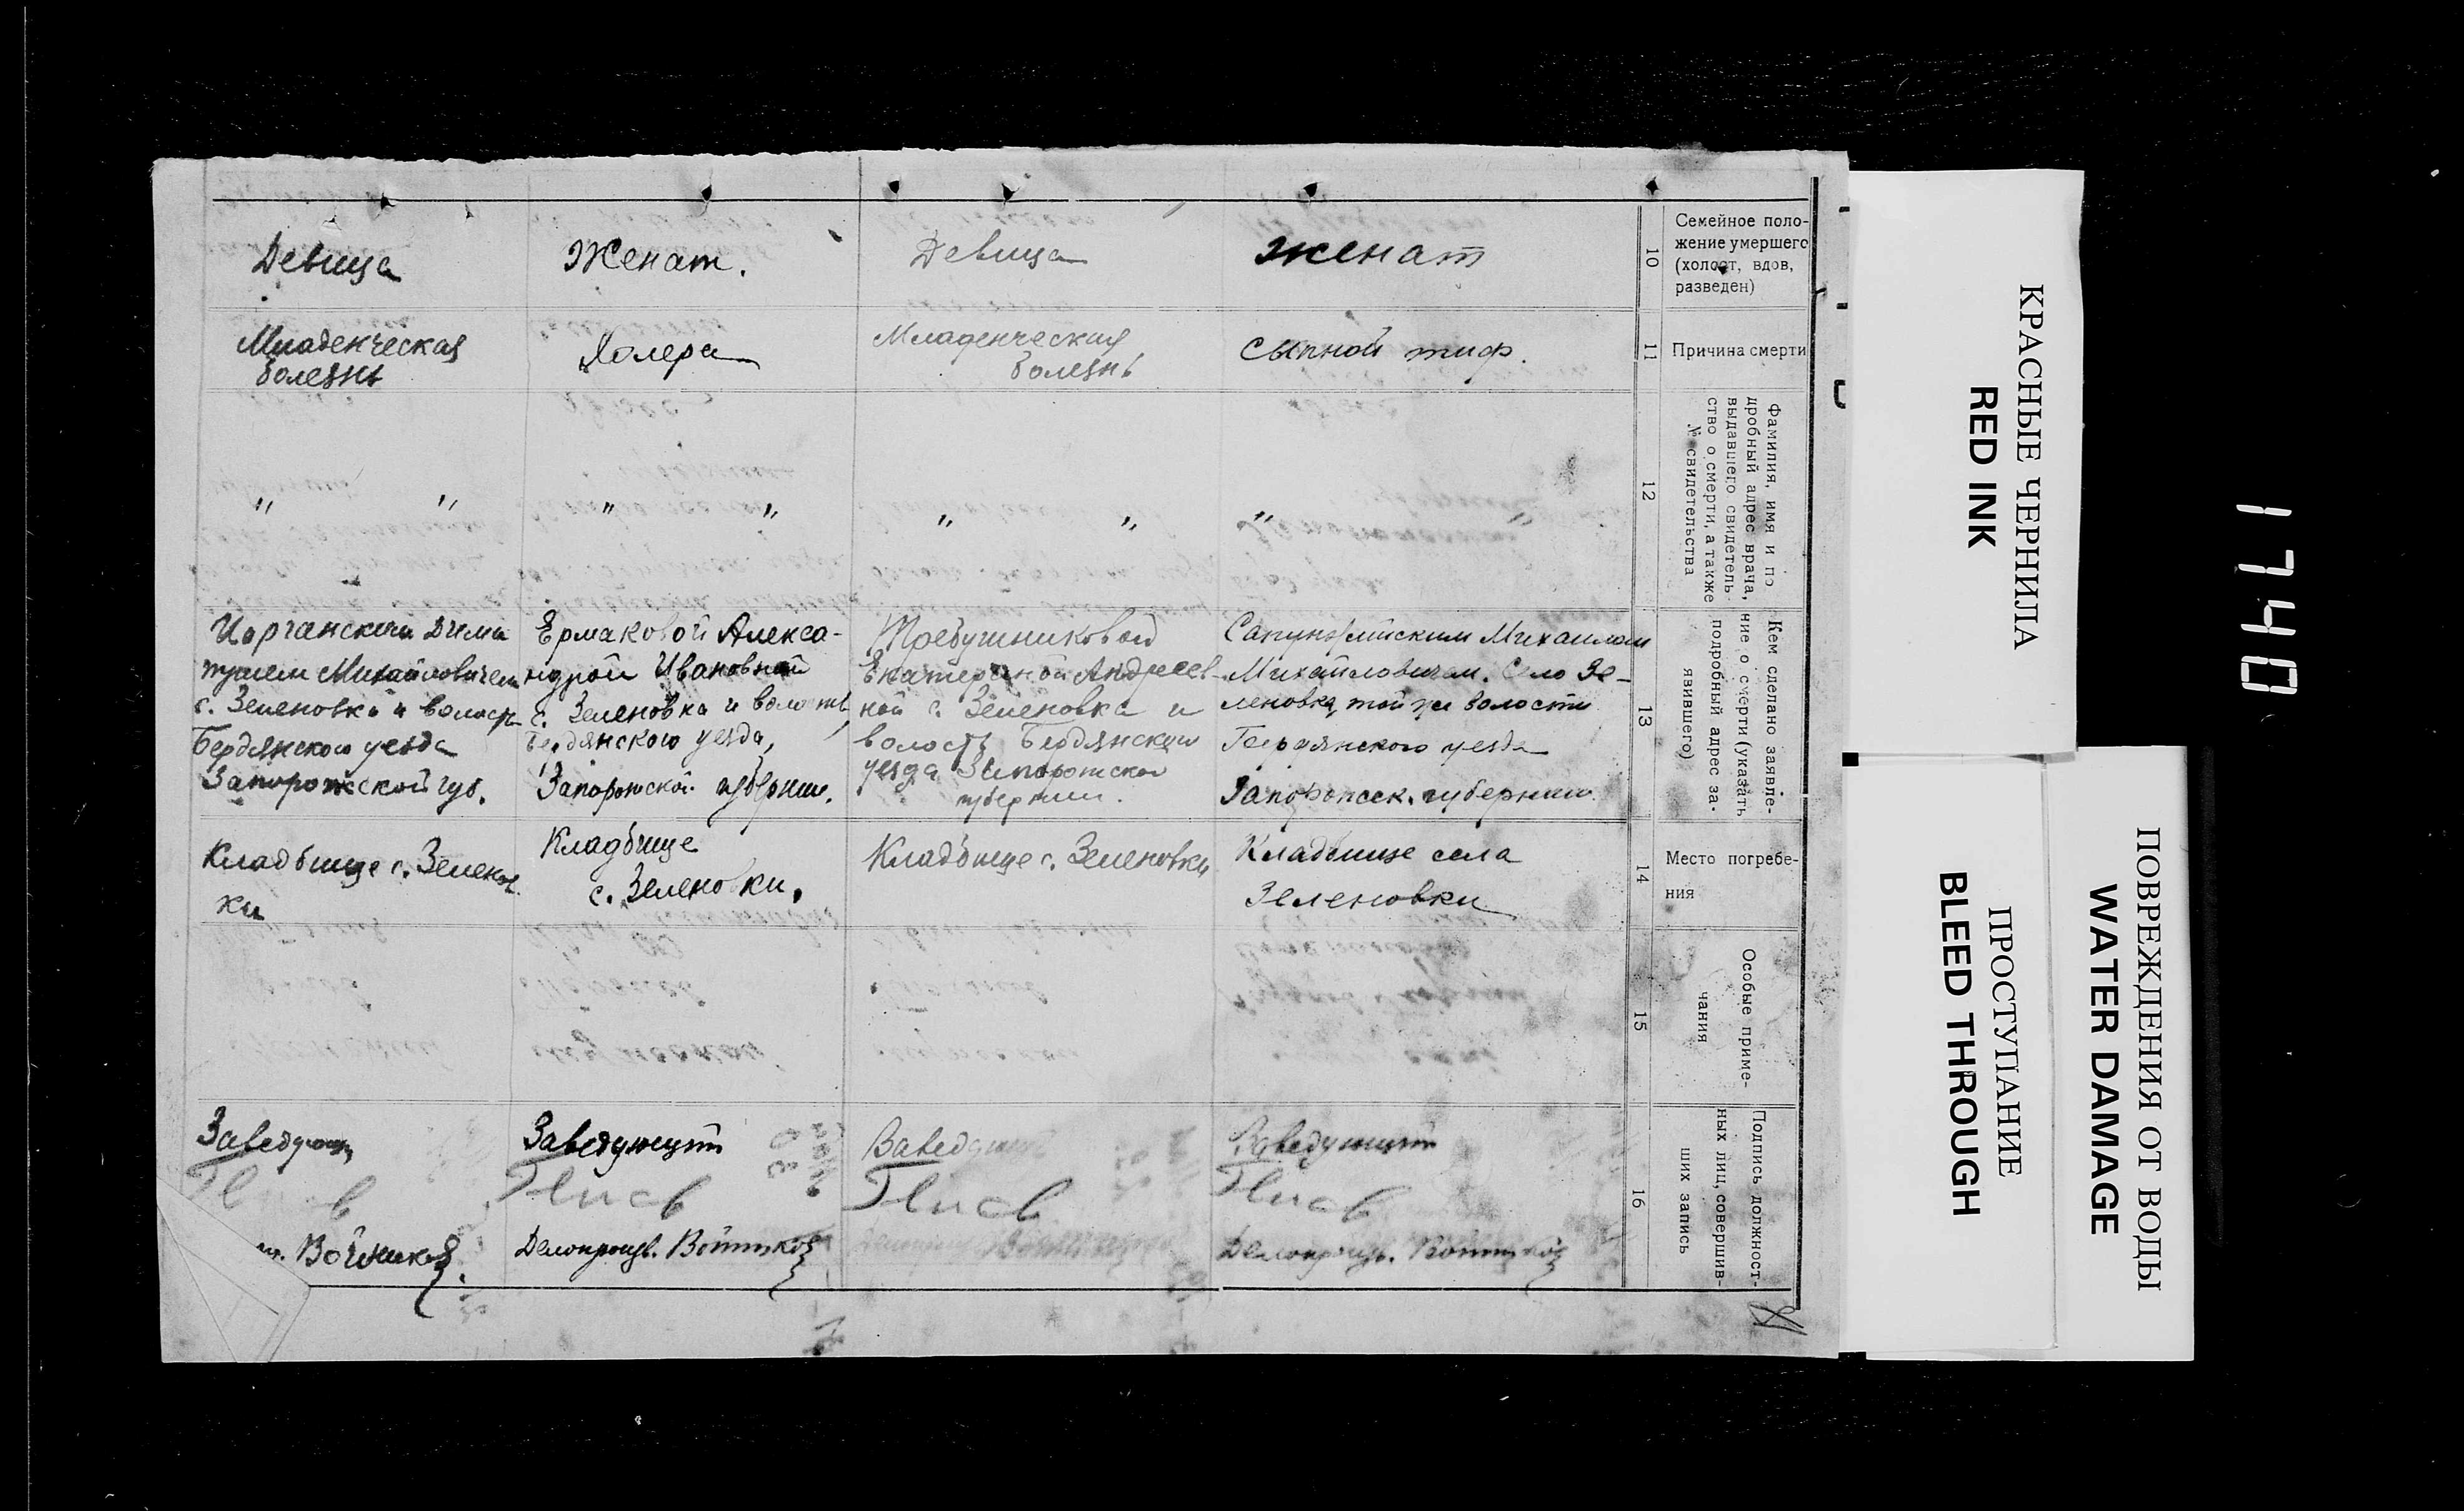 Девица
Женат.
Девица
женат
10
Семейное поло-
жение умершего
(холост, вдов,
разведен)
Младенческая
болезнь
Холера
Младенческая
болезнь
Сыпной тиф.
11
Причина смерти
" "
" "
" "
" "
12
Фамилия, имя и по
дробный адрес врача,
выдавшего свидетель-
ство о смерти, а также
№ свидетельства
Дими
трием Михайловичем
с. Зеленовка и волость
Бердянского уезда
Запорожской губ.
Ермаковой Алекса-
ндрой Ивановной
с. Зеленовка и волость,
Бердянского уезда,
Запорожской губернии.
Требушниковой
Екатериной Андреев-
ной с. Зеленовка и
волость Бердянского
уезда Запорожской
губернии.
Михаилом
Михайловичем. Село Зе-
леновка, той же волости
Бердянского уезда
Запорожск. губернии.
13
Кем сделано заявле-
ние о смерти (указать
подробный адрес за-
явившего)
Кладбище с. Зеленов
ки
Кладбище
с. Зеленовки.
Кладбище с. Зеленовки
Кладбище села
Зеленовки
14
Место погребе-
ния
15
Особые приме-
чания
Заведующ
Войников
Заведующий
Делопроизв. Войников
Заведующий
Заведующий
Делопроизв. Войников
16
Подпись должност-
ных лиц, совершив-
ших запись
КРАСНЫЕ ЧЕРНИЛА
RED INK
ПРОСТУПАНИЕ
BLEED THROUGH
ПОВРЕЖДЕНИЯ ОТ ВОДЫ
WATER DAMAGE
1740